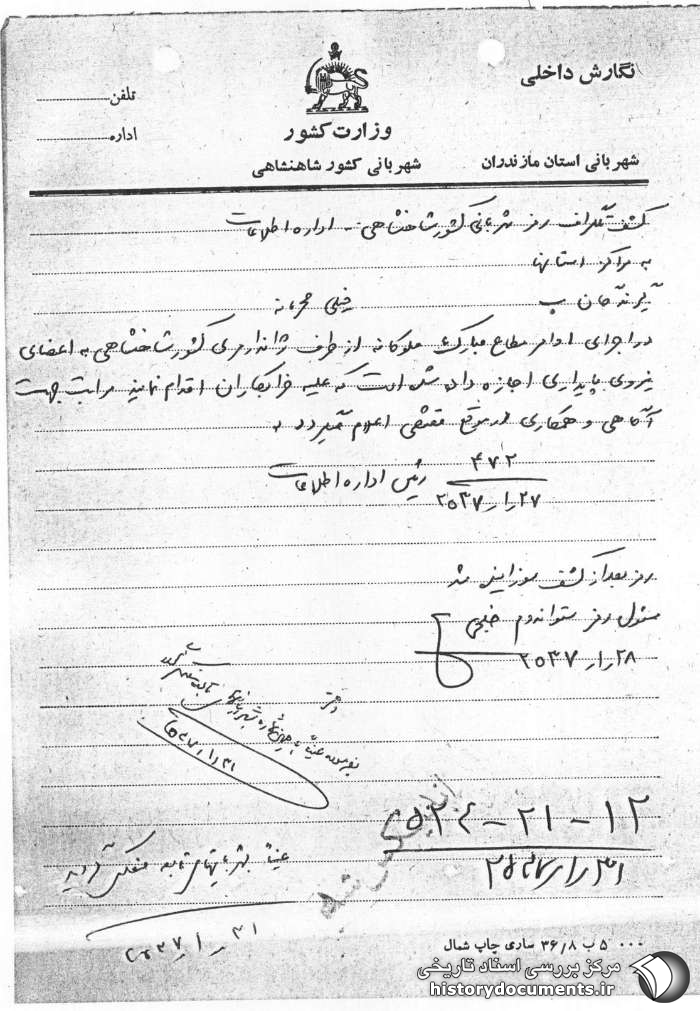 نگارش داخلی
تلفن
اداره
وزارت کشور
شهربانی استان مازندران
شهربانی کشور شاهنشاهی
کشف تلگراف رمز شهربانی کشور شاهنشاهی - اداره اطلاعات
به مراکز استانها
خیلی محرمانه
در اجرای اوامر مطاع مبارک ملوکانه از طرف ژاندارمری کشور شاهنشاهی به اعضای
نیروی پایداری اجازه داده شده است که علیه خرابکاران اقدام نمایند مراتب جهت
آگاهی و همکاری در موقع مقتضی اعلام میگردد
۴۷۲
۲۷ر۱ر۲۵۳۷
رئیس اداره اطلاعات
رمز بعد از کشف سوزانیده شد
مسئول رمز ستواندوم
۲۸ر۱ر۲۵۳۷
دفتر
۳۱ر۱ر۲۵۳۷
۱۲-۲۱-۵۲۴
۳۱ر۱ر۲۵۳۷
عیناً بشهربانیهای تابعه منعکس گردید
۳۱ر۱ر۲۵۳۷
۵۰۰۰ ب ۳۶٫۸ ساری چاپ شمال
مرکز بررسی اسناد تاریخی
historydocuments.ir